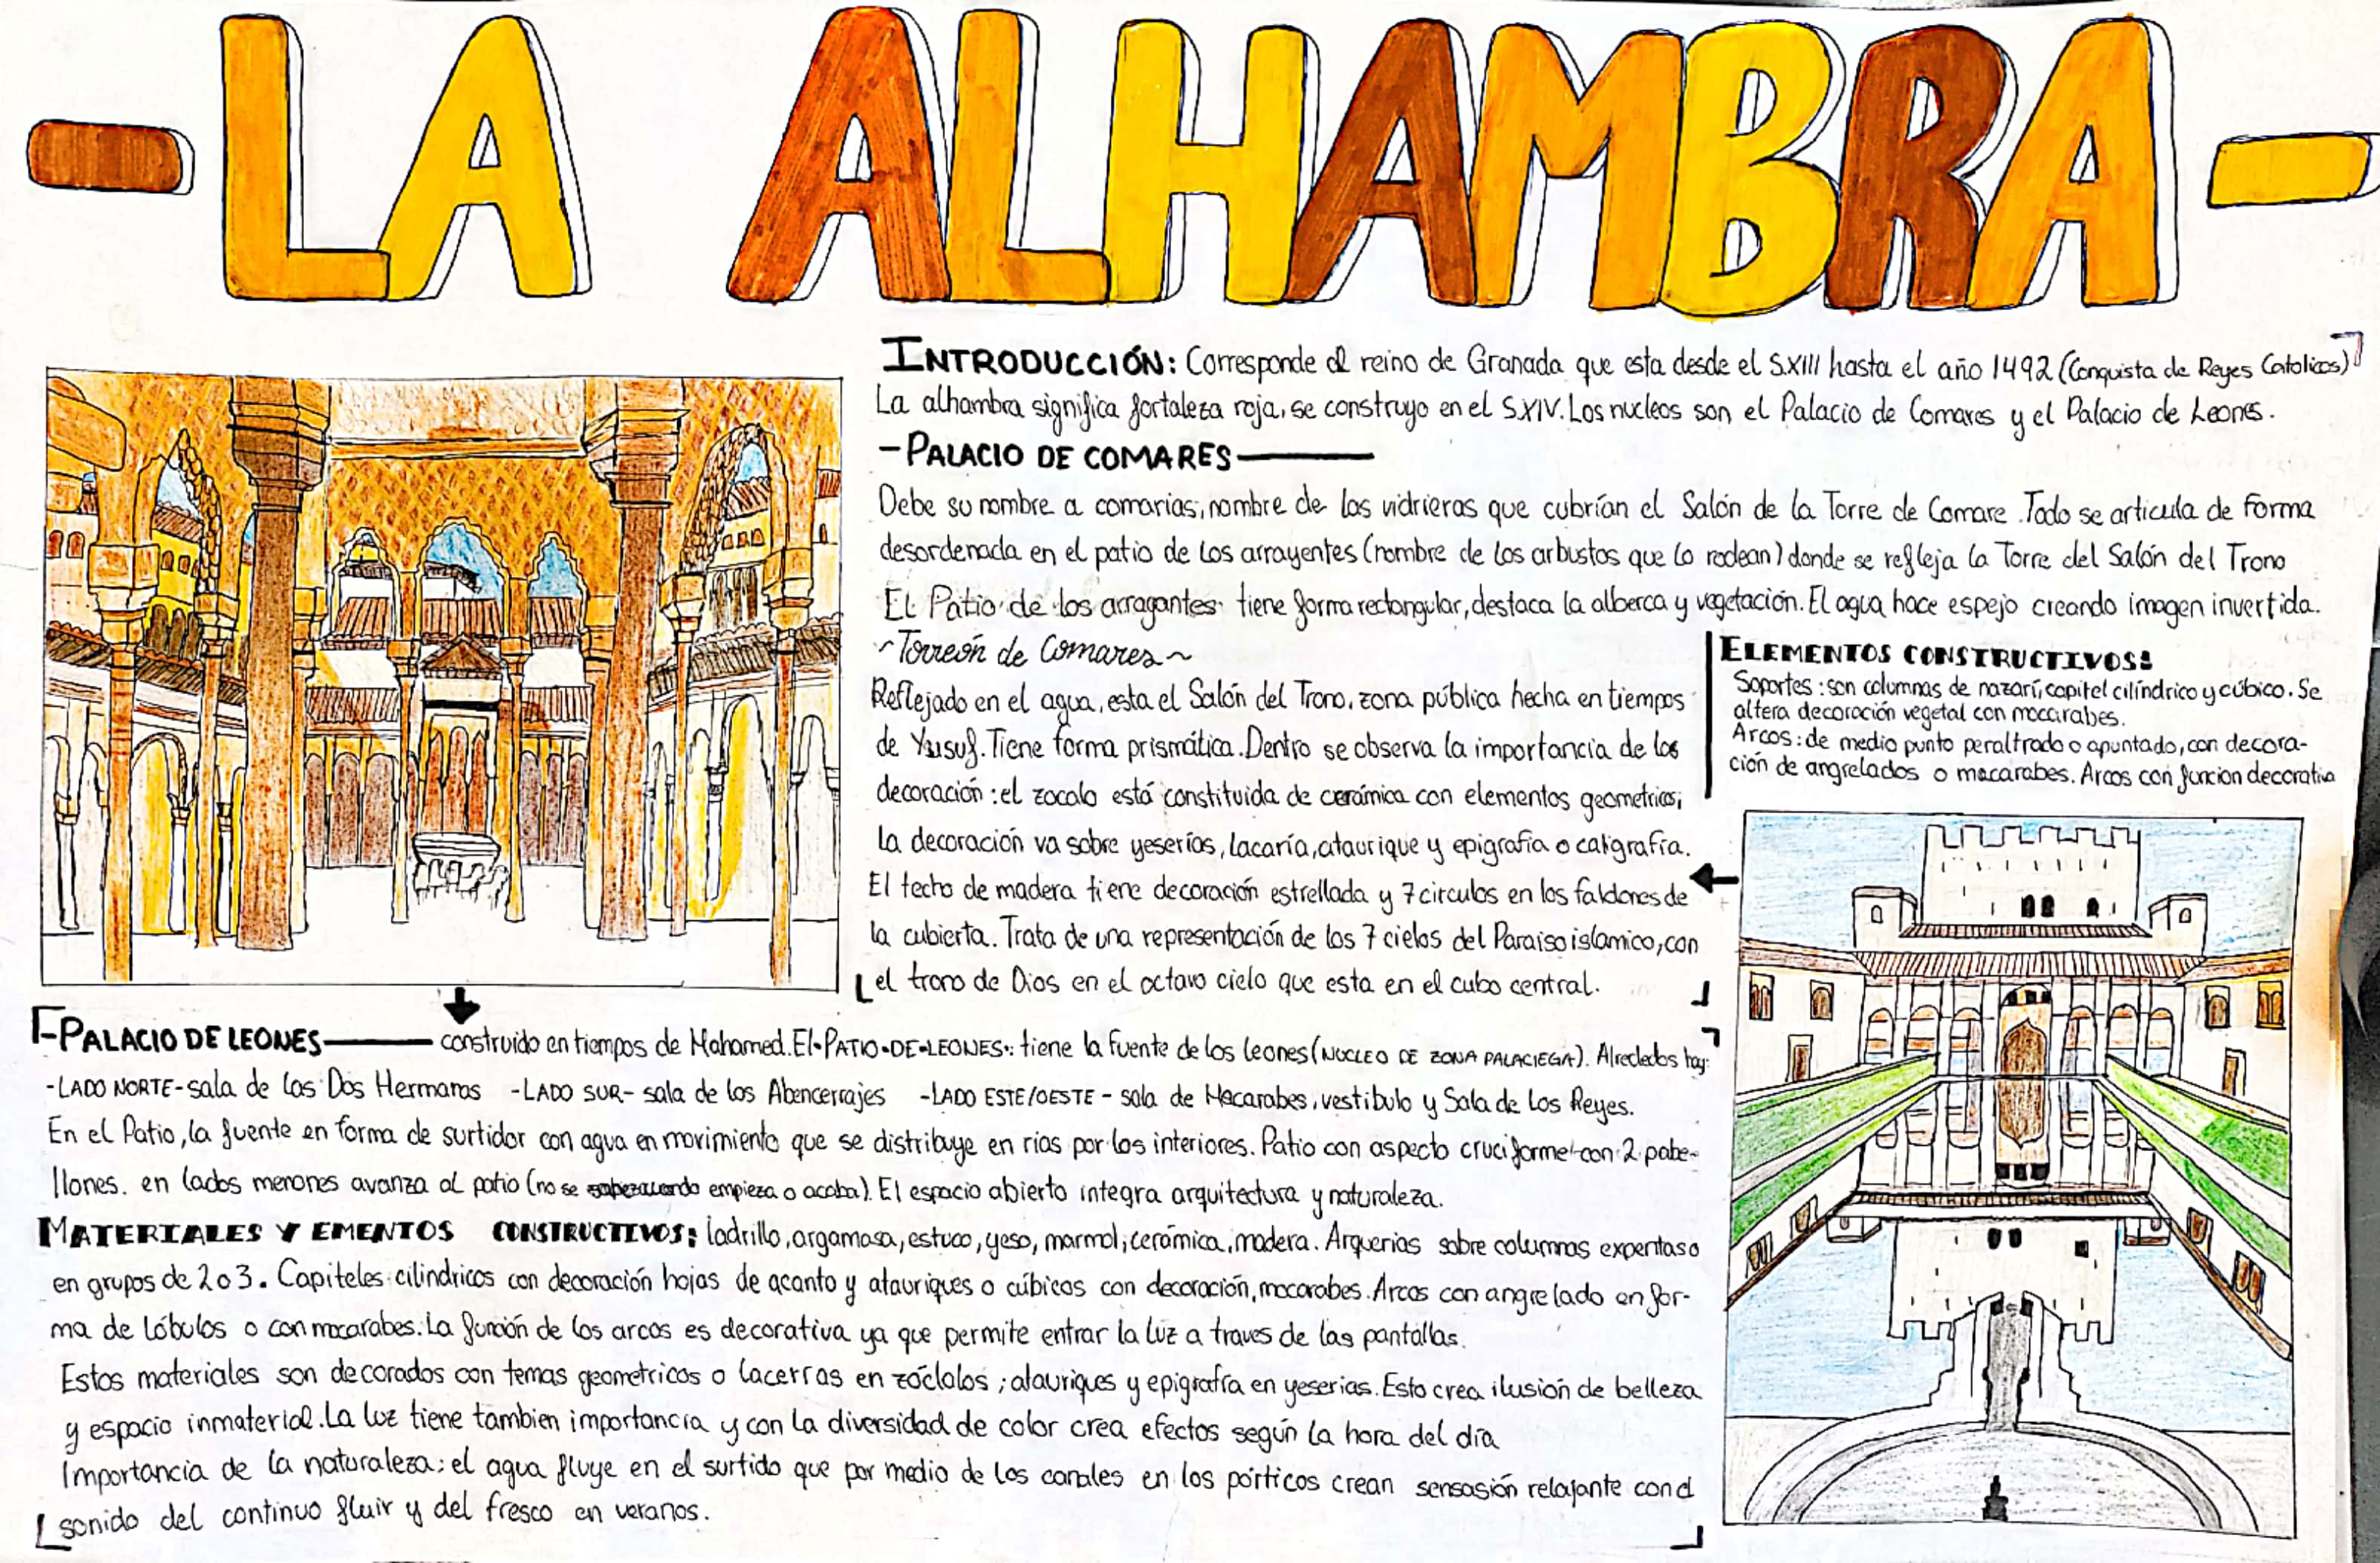 -LA ALHAMBRA-
INTRODUCCIÓN: Corresponde al reino de Granada que esta desde el S.XIII hasta el año 1492 (Conquista de Reyes Catolicos)
La alhambra significa fortaleza roja, se construyo en el S.XIV. Los nucleos son el Palacio de Comares y el Palacio de Leones.
-PALACIO DE COMARES
Debe su nombre a comarias; nombre de las vidrieras que cubrían el Salón de la Torre de Comare. Todo se articula de forma
desordenada en el patio de los arrayentes (nombre de los arbustos que lo rodean) donde se refleja la Torre del Salón del Trono
El Patio de los arragantes tiene forma rectangular, destaca la alberca y vegetación. El agua hace espejo creando imagen invertida.
~Torreón de Comares~
Reflejado en el agua, esta el Salón del Trono, zona pública hecha en tiempos
de Yusuf. Tiene forma prismática. Dentro se observa la importancia de los
decoración: el zocalo está constituida de cerámica con elementos geometricos;
la decoración va sobre yeserías, lacaría, ataurique y epigrafia o caligrafía.
El techo de madera tiene decoración estrellada y 7 circulos en los faldones de
la cubierta. Trata de una representación de los 7 cielos del Paraiso islamico, con
el trono de Dios en el octavo cielo que esta en el cubo central.
ELEMENTOS CONSTRUCTIVOS:
Soportes: son columnas de nazarí, capitel cilíndrico y cúbico. Se
altera decoración vegetal con mocarabes.
Arcos: de medio punto peraltrado o apuntado, con decora-
ción de angrelados o macarabes. Arcos con funcion decorativa
-PALACIO DE LEONES construido en tiempos de Mohamed. El PATIO DE LEONES: tiene la fuente de los leones (NUCLEO DE ZONA PALACIEGA). Alrededos hay:
-LADO NORTE- sala de las Dos Hermanas -LADO SUR- sala de los Abencerrajes -LADO ESTE/OESTE- sala de Macarabes, vestibulo y Sala de Los Reyes.
En el Patio, la fuente en forma de surtidor con agua en movimiento que se distribuye en rias por los interiores. Patio con aspecto cruciforme con 2 pabe-
llones. en lados menores avanza al patio (no se empieza o acaba). El espacio abierto integra arquitectura y naturaleza.
MATERIALES Y EMENTOS CONSTRUCTIVOS: ladrillo, argamasa, estuco, yeso, marmol, cerámica, madera. Arquerias sobre columnas expentas o
en grupos de 2 o 3. Capiteles cilindricos con decoración hojas de acanto y atauriques o cúbicos con decoración, mocarabes. Arcos con angrelado en for-
ma de lóbulos o con mocarabes. La función de los arcos es decorativa ya que permite entrar la luz a traves de las pantallas.
Estos materiales son decorados con temas geometricos o lacerras en zóclalos; atauriques y epigrafía en yeserias. Esto crea ilusión de belleza
y espacio inmaterial. La luz tiene tambien importancia y con la diversidad de color crea efectos según la hora del día
Importancia de la naturaleza: el agua fluye en el surtido que por medio de los canales en los pórticos crean sensasión relajante con el
sonido del continuo fluir y del fresco en veranos.